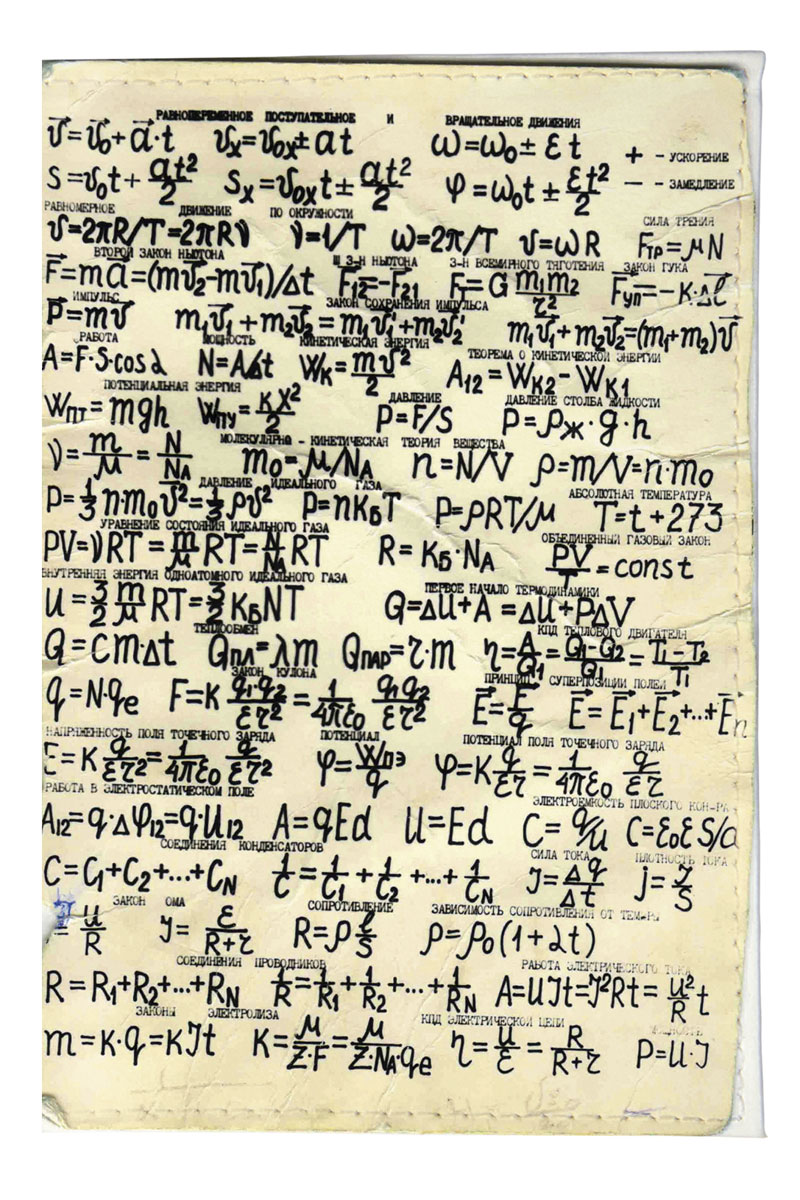 РАВНОПЕРЕМЕННОЕ ПОСТУПАТЕЛЬНОЕ И ВРАЩАТЕЛЬНОЕ ДВИЖЕНИЯ
v⃗=v⃗₀+a⃗·t vₓ=v₀ₓ±at ω=ω₀±εt + - УСКОРЕНИЕ
S=v₀t+at²/2 Sₓ=v₀ₓt±at²/2 φ=ω₀t±εt²/2 — - ЗАМЕДЛЕНИЕ
РАВНОМЕРНОЕ ДВИЖЕНИЕ ПО ОКРУЖНОСТИ СИЛА ТРЕНИЯ
v=2πR/T=2πRν ν=1/T ω=2π/T v=ωR Fтр=μN
ВТОРОЙ ЗАКОН НЬЮТОНА III З-Н НЬЮТОНА З-Н ВСЕМИРНОГО ТЯГОТЕНИЯ ЗАКОН ГУКА
F⃗=ma⃗=(mv⃗₂-mv⃗₁)/Δt F⃗₁₂=-F⃗₂₁ Fт=G m₁m₂/r² F⃗уп=-K·Δl⃗
ИМПУЛЬС ЗАКОН СОХРАНЕНИЯ ИМПУЛЬСА
P⃗=mv⃗ m₁v⃗₁+m₂v⃗₂=m₁v⃗₁'+m₂v⃗₂' m₁v⃗₁+m₂v⃗₂=(m₁+m₂)v⃗
РАБОТА МОЩНОСТЬ КИНЕТИЧЕСКАЯ ЭНЕРГИЯ ТЕОРЕМА О КИНЕТИЧЕСКОЙ ЭНЕРГИИ
A=F·S·cosα N=A/Δt Wк=mv²/2 A₁₂=Wк₂-Wк₁
ПОТЕНЦИАЛЬНАЯ ЭНЕРГИЯ ДАВЛЕНИЕ ДАВЛЕНИЕ СТОЛБА ЖИДКОСТИ
Wпт=mgh Wпу=KX²/2 P=F/S P=ρж·g·h
МОЛЕКУЛЯРНО - КИНЕТИЧЕСКАЯ ТЕОРИЯ ВЕЩЕСТВА
ν=m/μ=N/Nᴀ m₀=μ/Nᴀ n=N/V ρ=m/V=n·m₀
ДАВЛЕНИЕ ИДЕАЛЬНОГО ГАЗА АБСОЛЮТНАЯ ТЕМПЕРАТУРА
P=1/3 n·m₀v̅²=1/3 ρv² P=nKБT P=ρRT/μ T=t+273
УРАВНЕНИЕ СОСТОЯНИЯ ИДЕАЛЬНОГО ГАЗА ОБЪЕДИНЕННЫЙ ГАЗОВЫЙ ЗАКОН
PV=νRT=m/μ RT=N/Nᴀ RT R=KБ·Nᴀ PV/T=const
ВНУТРЕННЯЯ ЭНЕРГИЯ ОДНОАТОМНОГО ИДЕАЛЬНОГО ГАЗА ПЕРВОЕ НАЧАЛО ТЕРМОДИНАМИКИ
U=3/2 m/μ RT=3/2 KБNT Q=ΔU+A=ΔU+PΔV
ТЕПЛООБМЕН КПД ТЕПЛОВОГО ДВИГАТЕЛЯ
Q=Cm·Δt Qпл=λm Qпар=r·m η=A/Q₁=Q₁-Q₂/Q₁=T₁-T₂/T₁
ЗАКОН КУЛОНА ПРИНЦИП СУПЕРПОЗИЦИИ ПОЛЕЙ
q=N·qe F=K q₁q₂/εr²=1/4πε₀ q₁q₂/εr² E⃗=F⃗/q E⃗=E⃗₁+E⃗₂+..+E⃗n
НАПРЯЖЕННОСТЬ ПОЛЯ ТОЧЕЧНОГО ЗАРЯДА ПОТЕНЦИАЛ ПОТЕНЦИАЛ ПОЛЯ ТОЧЕЧНОГО ЗАРЯДА
E=K q/εr²=1/4πε₀ q/εr² φ=Wпэ/q φ=K q/εr=1/4πε₀ q/εr
РАБОТА В ЭЛЕКТРОСТАТИЧЕСКОМ ПОЛЕ ЭЛЕКТРОЕМКОСТЬ ПЛОСКОГО КОН-РА
A₁₂=q·Δφ₁₂=q·U₁₂ A=qEd U=Ed C=q/U C=ε₀εS/d
СОЕДИНЕНИЯ КОНДЕНСАТОРОВ СИЛА ТОКА ПЛОТНОСТЬ ТОКА
C=C₁+C₂+...+Cɴ 1/C=1/C₁+1/C₂+...+1/Cɴ J=Δq/Δt j=J/S
ЗАКОН ОМА СОПРОТИВЛЕНИЕ ЗАВИСИМОСТЬ СОПРОТИВЛЕНИЯ ОТ ТЕМ-РЫ
=U/R J=ε/R+r R=ρ l/S ρ=ρ₀(1+αt)
СОЕДИНЕНИЯ ПРОВОДНИКОВ РАБОТА ЭЛЕКТРИЧЕСКОГО ТОКА
R=R₁+R₂+...+Rɴ 1/R=1/R₁+1/R₂+...+1/Rɴ A=UJt=J²Rt=U²/R t
ЗАКОНЫ ЭЛЕКТРОЛИЗА КПД ЭЛЕКТРИЧЕСКОЙ ЦЕПИ МОЩНОСТЬ
m=K·q=KJt K=μ/Z·F=μ/Z·Nᴀ·qe η=U/ε=R/R+r P=U·J